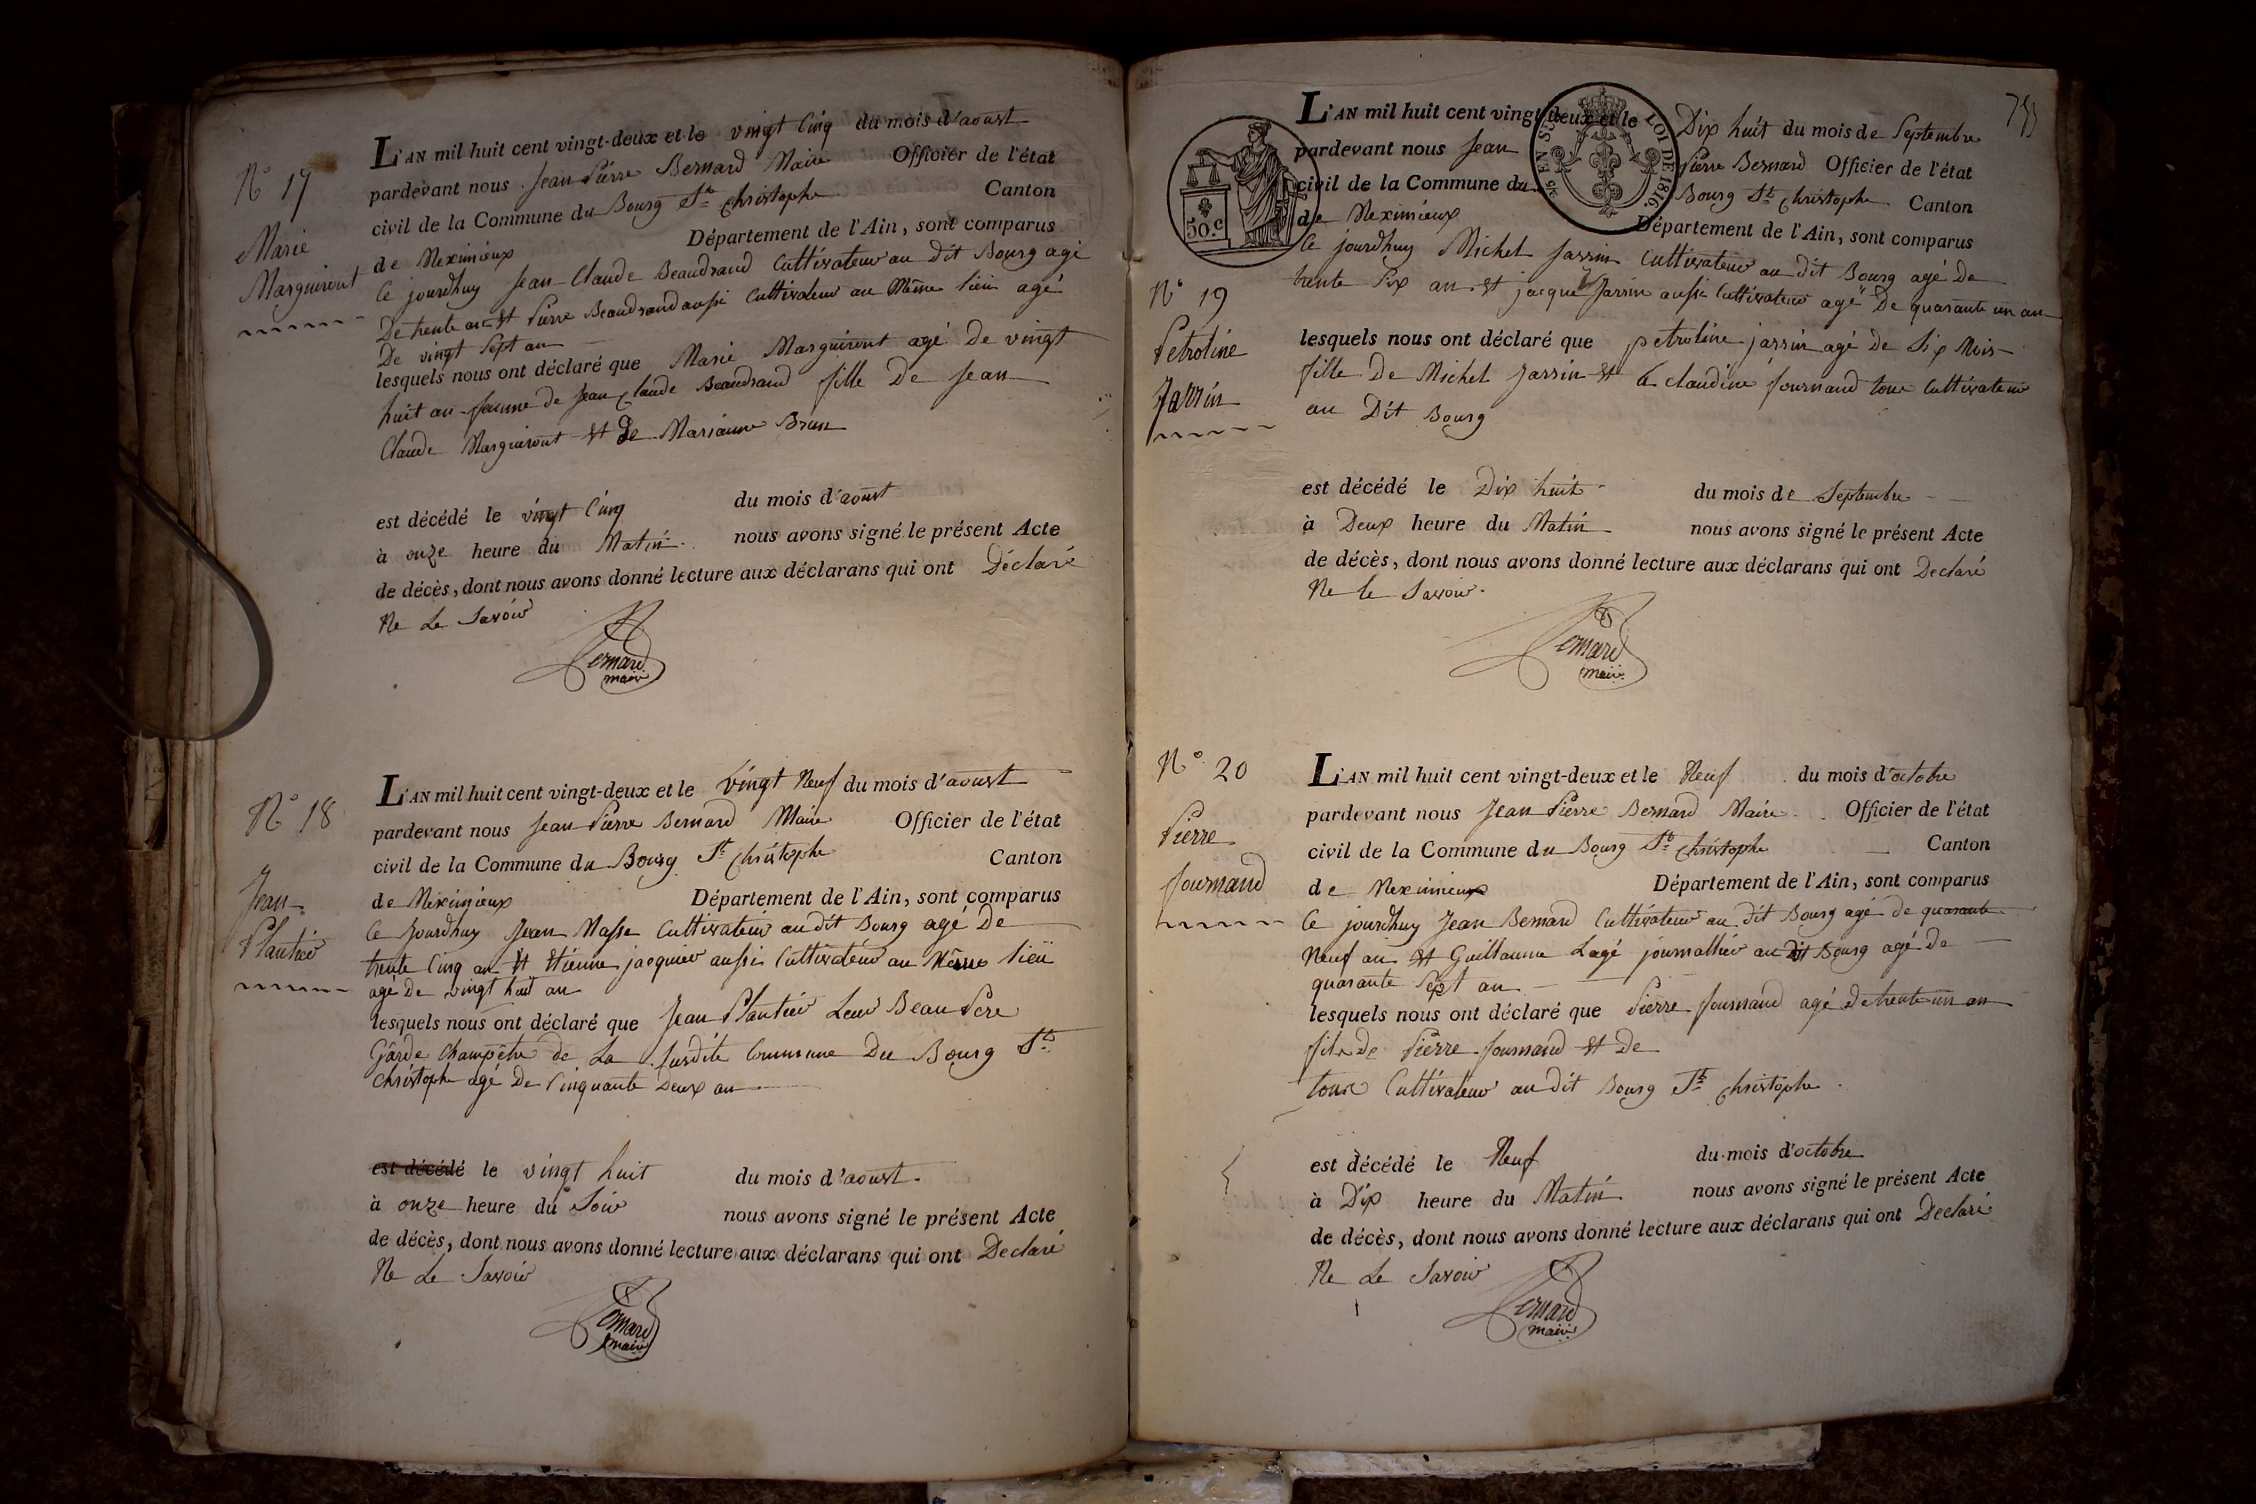 N° 17
Marie
Marguiront
L'AN mil huit cent vingt-deux et le vingt Cinq du mois d'aoust
pardevant nous Jean Pierre Bernard Maire Officier de l'état
civil de la Commune du Bourg St Christophe Canton
de Meximieux Département de l'Ain, sont comparus
Ce jourdhuy Jean Claude Beaudrand Cultivateur au dit Bourg agé
De trente an Et Pierre Beaudrand aussi Cultivateur au Même lieu agé
De vingt Sept an
lesquels nous ont déclaré que Marie Marguiront agé de vingt
huit an femme de Jean Claude Beaudrand fille De Jean
Claude Marguiront Et De Marianne Brun
est décédé le vingt Cinq du mois d'aoust
à onze heure du Matin nous avons signé le présent Acte
de décès, dont nous avons donné lecture aux déclarans qui ont Déclaré
Ne Le Savoir
Bernard
maire
N° 18
Jean
Plantier
L'AN mil huit cent vingt-deux et le vingt Neuf du mois d'aoust
pardevant nous Jean Pierre Bernard Maire Officier de l'état
civil de la Commune du Bourg St Christophe Canton
de Meximieux Département de l'Ain, sont comparus
Ce Jourdhuy Jean Masse Cultivateur au dit Bourg agé De
trente Cinq an Et Etienne jacquier aussi Cultivateur au Même lieu
agé De vingt huit an
lesquels nous ont déclaré que Jean Plantier Leur Beau Pere
Gârde Champêtre de La Susdite Commune Du Bourg St
Christophe agé De Cinquante Deux an
est décédé le vingt huit du mois d'aoust
à onze heure du Soir nous avons signé le présent Acte
de décès, dont nous avons donné lecture aux déclarans qui ont Declaré
Ne Le Savoir
Bernard
maire
L'AN mil huit cent vingt-deux et le Dix huit du mois de Septembre
pardevant nous Jean Pierre Bernard Officier de l'état
civil de la Commune du Bourg St Christophe Canton
de Meximieux Département de l'Ain, sont comparus
50.c
EN SUS
LOI DE 1816.
N° 19
Petroline
Jarrin
Ce jourdhuy Michel Jarrin Cultivateur au dit Bourg agé De
trente Six an Et jacque Jarrin aussi Cultivateur agé De quarante un an
lesquels nous ont déclaré que petroline jarrin agé de Six Mois
fille De Michel Jarrin Et de Claudine fournand tous Cultivateur
au Dit Bourg
est décédé le Dix huit du mois de Septembre
à Deux heure du Matin nous avons signé le présent Acte
de décès, dont nous avons donné lecture aux déclarans qui ont Declaré
Ne le Savoir
Bernard
maire
N° 20
Pierre
fournand
L'AN mil huit cent vingt-deux et le Neuf du mois d'octobre
pardevant nous Jean Pierre Bernard Maire Officier de l'état
civil de la Commune du Bourg St Christophe Canton
de Meximieux Département de l'Ain, sont comparus
Ce jourdhuy Jean Bernard Cultivateur au dit Bourg agé de quarante
Neuf an Et Guillaume Lagé journallier au dit Bourg agé De
quarante Sept an
lesquels nous ont déclaré que Pierre fournand agé de trente un an
fils De Pierre fournand Et De
tous Cultivateur au dit Bourg St Christophe
est décédé le Neuf du mois d'octobre
à Dix heure du Matin nous avons signé le présent Acte
de décès, dont nous avons donné lecture aux déclarans qui ont Declaré
Ne Le Savoir
Bernard
maire